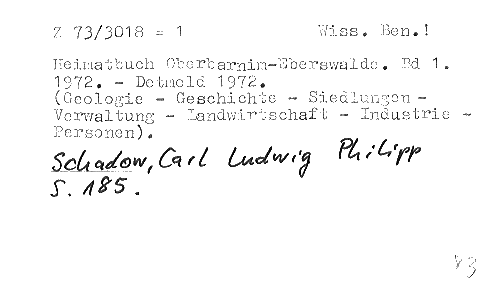 Z 73/3018 = 1 Wiss. Ben.!
Heimatbuch Oberbarnim-Eberswalde. Bd 1.
1972. - Detmold 1972.
(Geologie - Geschichte - Siedlungen -
Verwaltung - Landwirtschaft - Industrie -
Personen).
Schadow, Carl Ludwig Philipp
S. 185.